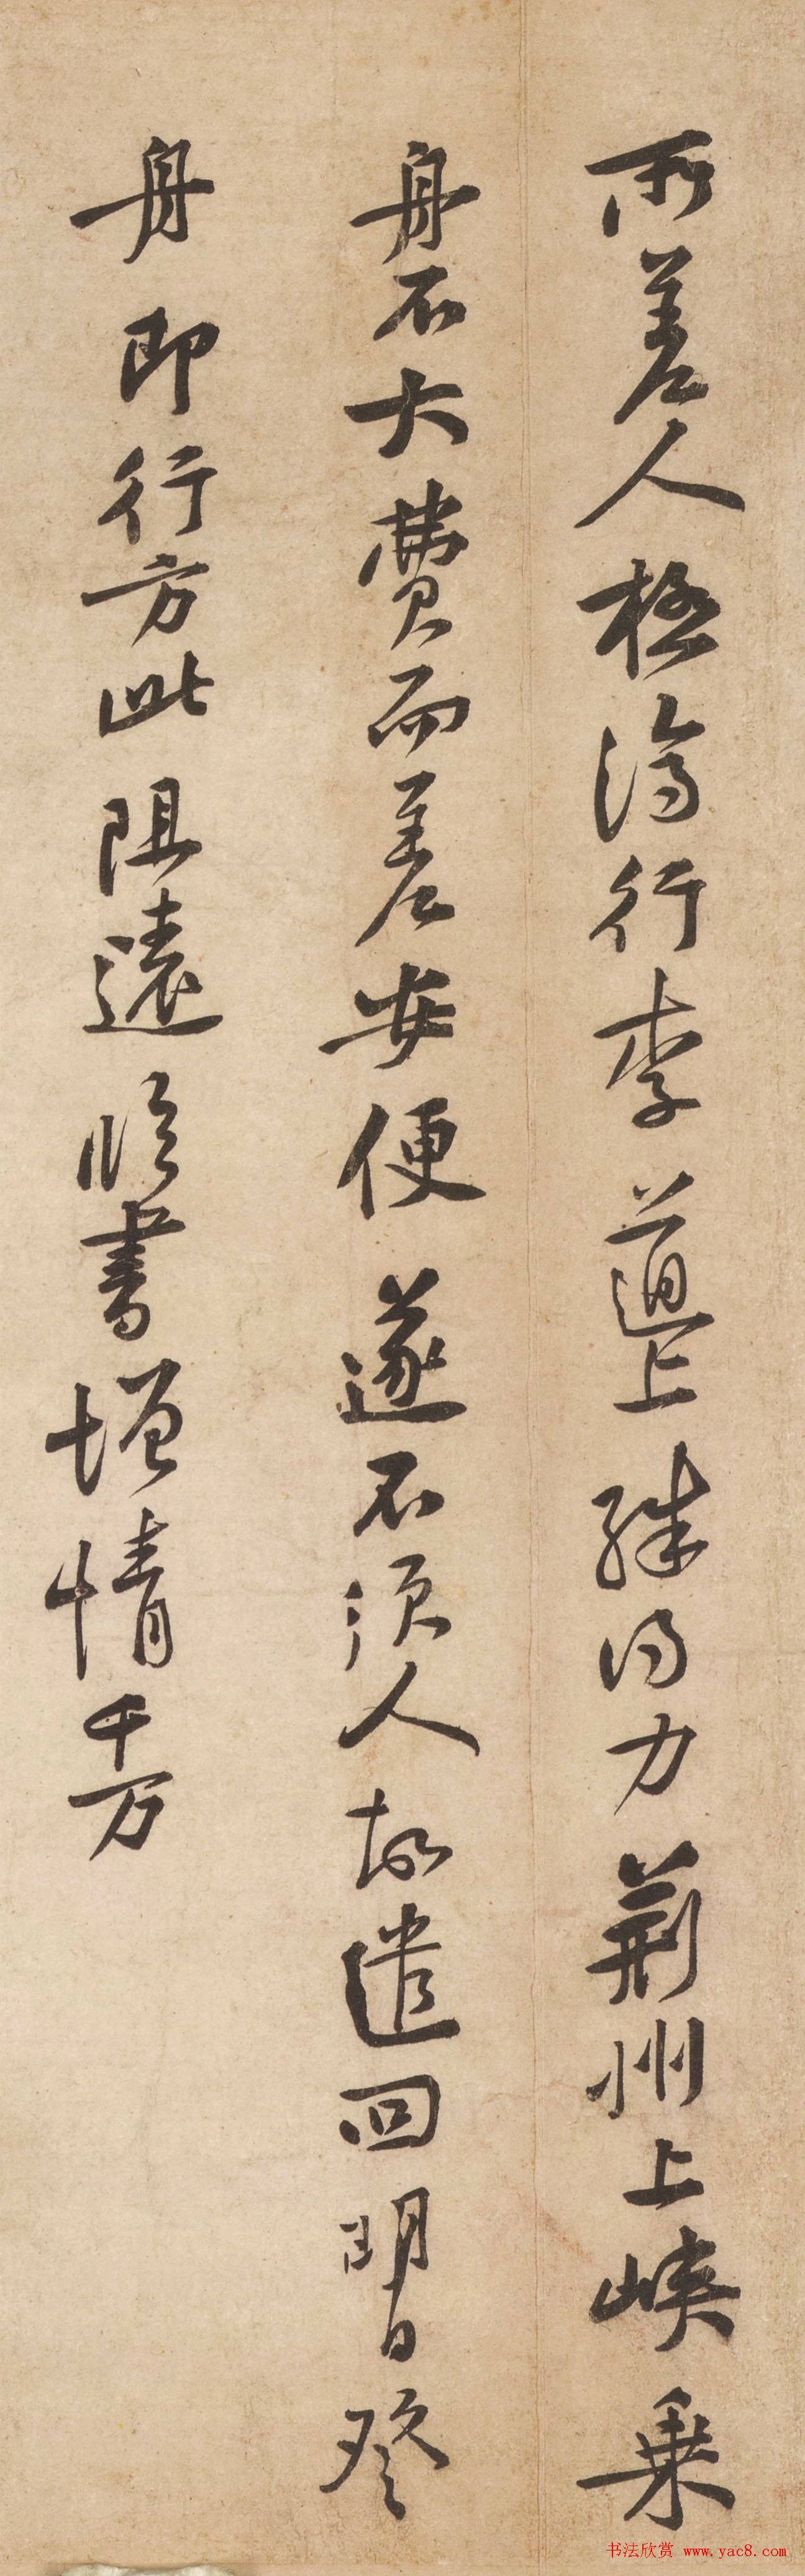 所差人極濟行李道上殊得力荊州上峽乗
舟不大費而差安便遂不須人故遣回明日登
舟即行方此阻遠臨書增情千万
书法欣赏 www.yac8.com